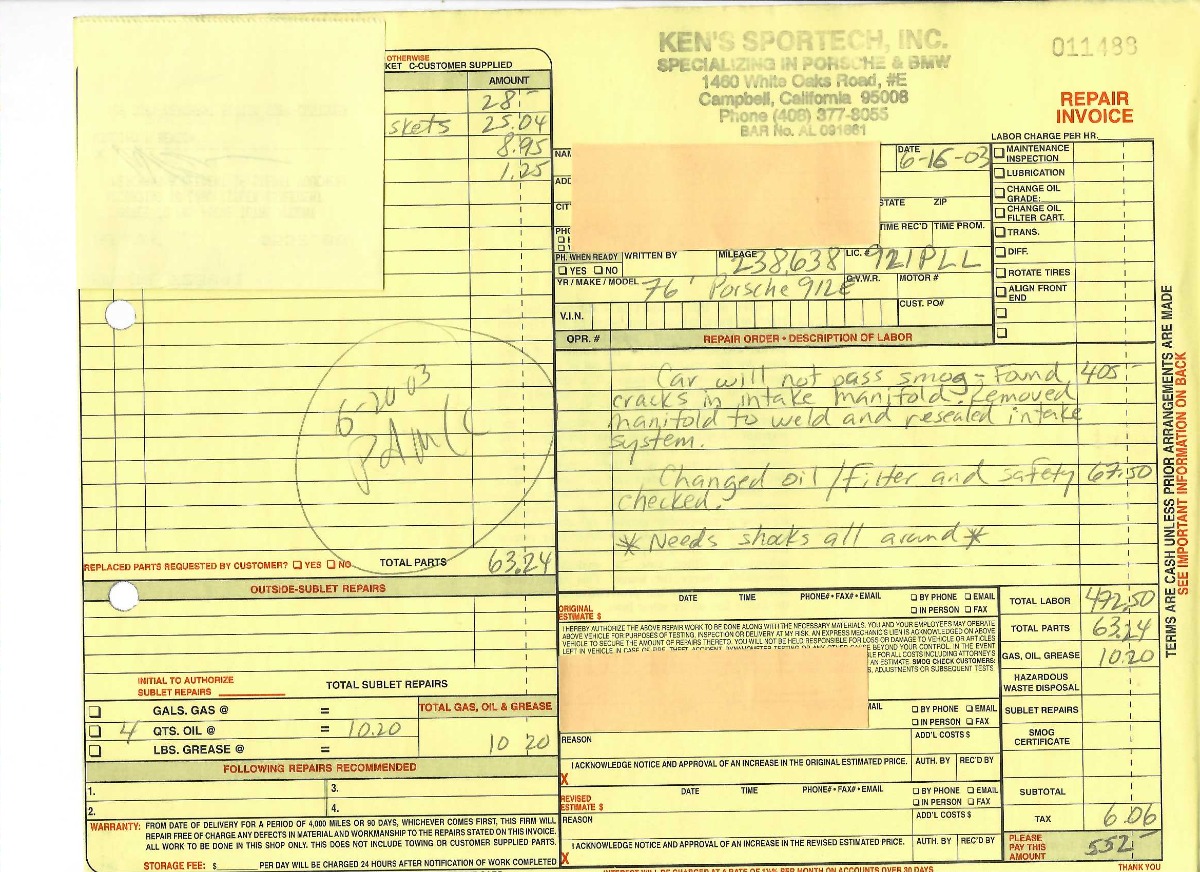 OTHERWISE
KET C-CUSTOMER SUPPLIED
AMOUNT
28.-
skets 25.04
8.95
1.25
6-2003
REPLACED PARTS REQUESTED BY CUSTOMER? YES NO
TOTAL PARTS 63.24
OUTSIDE-SUBLET REPAIRS
INITIAL TO AUTHORIZE
SUBLET REPAIRS
TOTAL SUBLET REPAIRS
GALS. GAS @ =
TOTAL GAS, OIL & GREASE
4 QTS. OIL @ = 10.20
LBS. GREASE @ =
10 20
FOLLOWING REPAIRS RECOMMENDED
1. 3.
2. 4.
WARRANTY: FROM DATE OF DELIVERY FOR A PERIOD OF 4,000 MILES OR 90 DAYS, WHICHEVER COMES FIRST, THIS FIRM WILL
REPAIR FREE OF CHARGE ANY DEFECTS IN MATERIAL AND WORKMANSHIP TO THE REPAIRS STATED ON THIS INVOICE.
ALL WORK TO BE DONE IN THIS SHOP ONLY. THIS DOES NOT INCLUDE TOWING OR CUSTOMER SUPPLIED PARTS.
STORAGE FEE: $ PER DAY WILL BE CHARGED 24 HOURS AFTER NOTIFICATION OF WORK COMPLETED
KEN'S SPORTECH, INC.
SPECIALIZING IN PORSCHE & BMW
1460 White Oaks Road, #E
Campbell, California 95008
Phone (408) 377-8055
BAR No. AL 091661
011488
REPAIR
INVOICE
LABOR CHARGE PER HR.
NAM
DATE 6-16-03
ADD
CIT
STATE ZIP
PHO
TIME REC'D TIME PROM.
PH. WHEN READY
YES NO
WRITTEN BY
MILEAGE 238638
LIC. # 921PLL
YR / MAKE / MODEL 76' Porsche 912E
G.V.W.R.
MOTOR #
V.I.N.
CUST. PO#
MAINTENANCE
INSPECTION
LUBRICATION
CHANGE OIL
GRADE:
CHANGE OIL
FILTER CART.
TRANS.
DIFF.
ROTATE TIRES
ALIGN FRONT
END
OPR. #
REPAIR ORDER • DESCRIPTION OF LABOR
Car will not pass smog - Found 405-
cracks in intake manifold. Removed
manifold to weld and resealed intake
system.
Changed oil/filter and safety 67.50
checked.
* Needs shocks all around *
ORIGINAL
ESTIMATE $
DATE TIME PHONE# • FAX# • EMAIL
BY PHONE EMAIL
IN PERSON FAX
I HEREBY AUTHORIZE THE ABOVE REPAIR WORK TO BE DONE ALONG WITH THE NECESSARY MATERIALS. YOU AND YOUR EMPLOYEES MAY OPERATE
ABOVE VEHICLE FOR PURPOSES OF TESTING, INSPECTION OR DELIVERY AT MY RISK. AN EXPRESS MECHANIC'S LIEN IS ACKNOWLEDGED ON ABOVE
VEHICLE TO SECURE THE AMOUNT OF REPAIRS THERETO. YOU WILL NOT BE HELD RESPONSIBLE FOR LOSS OR DAMAGE TO VEHICLE OR ARTICLES
LEFT IN VEHICLE IN CASE OF FIRE, THEFT, ACCIDENT, BEYOND YOUR CONTROL. IN THE EVENT
LE FOR ALL COSTS INCLUDING ATTORNEY'S
AN ESTIMATE. SMOG CHECK CUSTOMERS:
, ADJUSTMENTS OR SUBSEQUENT TESTS.
MAIL
BY PHONE EMAIL
IN PERSON FAX
REASON
ADD'L COSTS $
X I ACKNOWLEDGE NOTICE AND APPROVAL OF AN INCREASE IN THE ORIGINAL ESTIMATED PRICE.
AUTH. BY REC'D BY
REVISED
ESTIMATE $
DATE TIME PHONE# • FAX# • EMAIL
BY PHONE EMAIL
IN PERSON FAX
REASON
ADD'L COSTS $
X I ACKNOWLEDGE NOTICE AND APPROVAL OF AN INCREASE IN THE REVISED ESTIMATED PRICE.
AUTH. BY REC'D BY
TOTAL LABOR 472.50
TOTAL PARTS 63.24
GAS, OIL, GREASE 10.20
HAZARDOUS
WASTE DISPOSAL
SUBLET REPAIRS
SMOG
CERTIFICATE
SUBTOTAL
TAX 6.06
PLEASE
PAY THIS
AMOUNT 552-
THANK YOU
INTEREST WILL BE CHARGED AT A RATE OF 1½% PER MONTH ON ACCOUNTS OVER 30 DAYS
TERMS ARE CASH UNLESS PRIOR ARRANGEMENTS ARE MADE
SEE IMPORTANT INFORMATION ON BACK